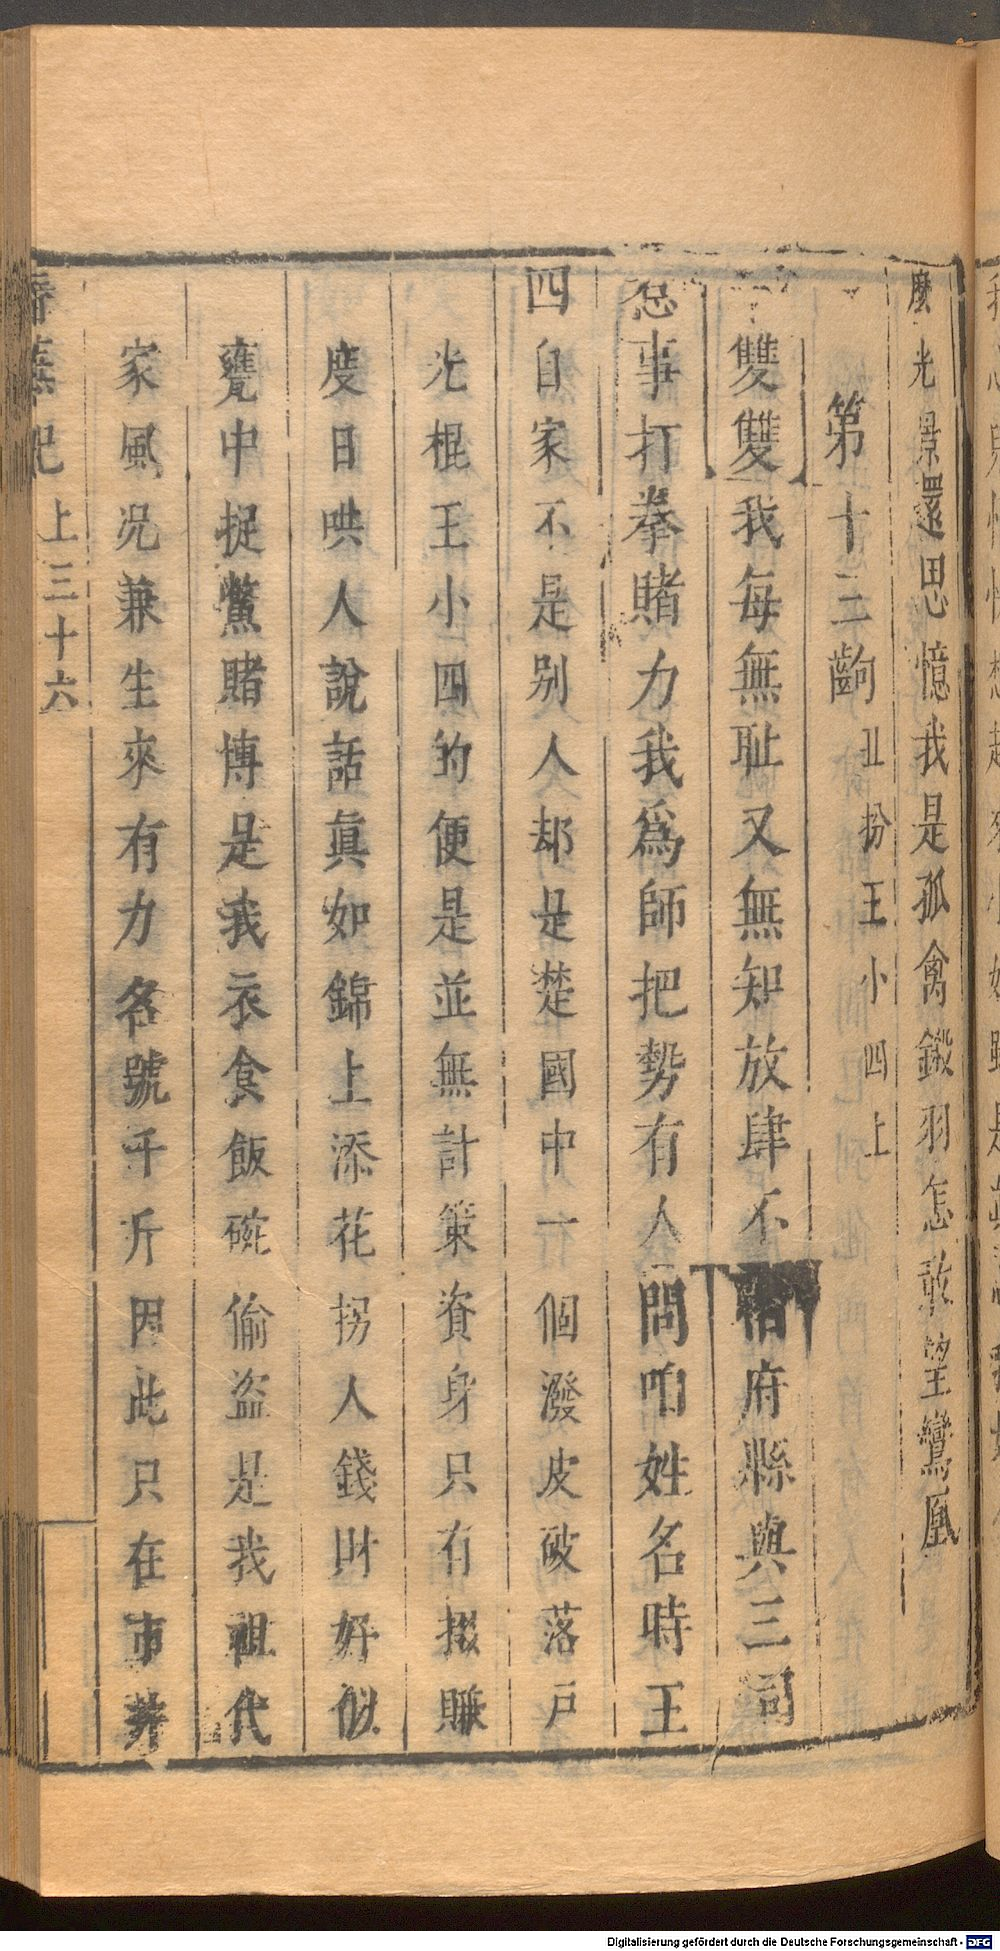 麼光景還思憶我是孤禽鎩羽怎敢望鸞凰
第十三齣 丑扮王小四上
雙雙我每無耻又無知放肆不怕府縣與三司
惹事打拳賭力我爲師把勢有人問咱姓名時王
四自家不是别人却是楚國中一個潑皮破落户
光棍王小四的便是並無計策資身只有掇賺
度日哄人說話真如錦上添花拐人錢財好似
甕中捉鱉賭博是我衣食飯碗偷盜是我祖代
家風况兼生來有力名號千斤因此只在市井
春蕪記 上三十六
Digitalisierung gefördert durch die Deutsche Forschungsgemeinschaft - DFG